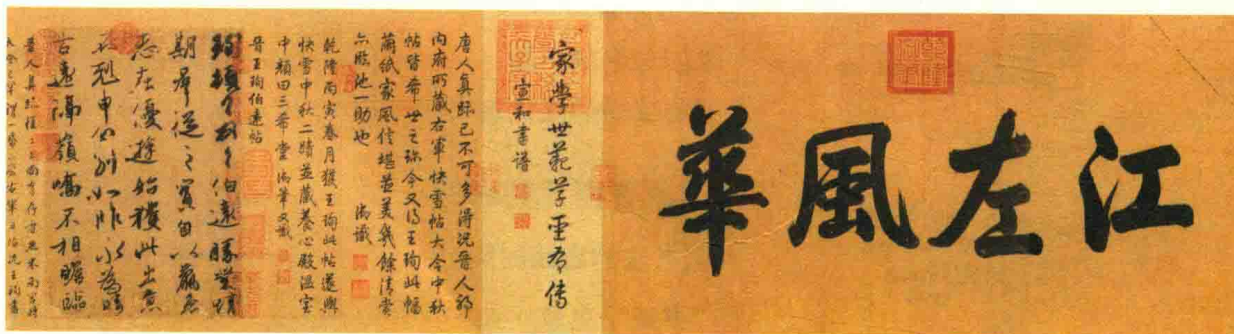 江左風華
家學世範草聖有傳
宣和書譜
唐人真跡已不可多得況晉人耶
內府所藏右軍快雪帖大令中秋
帖皆希世之珍今又得王珣此幅
繭紙家風信堪並美幾餘清賞
亦臨池一助也 御識
乾隆丙寅春月獲王珣此帖遂與
快雪中秋二蹟並藏養心殿溫室
中顏曰三希堂御筆又識
晉王珣伯遠帖
珣頓首頓首伯遠勝業情
期群從之寶自以羸患
志在優游始獲此出意
不剋申分別如昨永為疇
古遠隔嶺嶠不相瞻臨
晉人真跡惟二王尚有存者然米南宮時
大令已罕謂一紙可當右軍五帖況王珣書